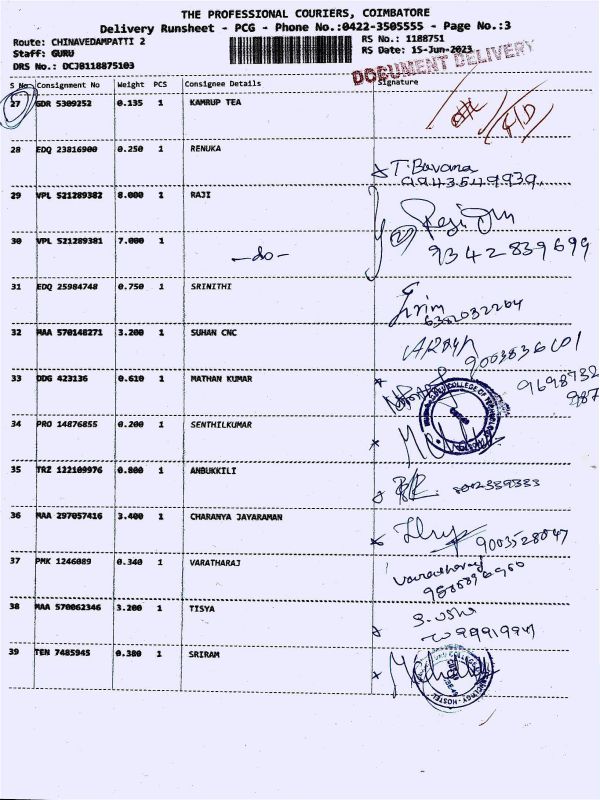 THE PROFESSIONAL COURIERS, COIMBATORE
Delivery Runsheet - PCG - Phone No.:0422-3505555 - Page No.:3
Route: CHINAVEDAMPATTI 2 RS No.: 1188751
Staff: GURU RS Date: 15-Jun-2023
DRS No.: DCJB118875103
DOCUMENT DELIVERY
S No Consignment No Weight PCS Consignee Details Signature
27 GDR 5309252 0.135 1 KAMRUP TEA
28 EDQ 23816900 0.250 1 RENUKA
T. Bavana
9943549939
29 VPL 521289382 8.000 1 RAJI
30 VPL 521289381 7.000 1 -do-
9342839699
31 EDQ 25984748 0.750 1 SRINITHI
6382032204
32 MAA 570148271 3.200 1 SUHAN CNC
9003836601
33 DDG 423136 0.610 1 MATHAN KUMAR
9698732
987
34 PRO 14876855 0.200 1 SENTHILKUMAR
35 TRZ 122109976 0.800 1 ANBUKKILI
36 MAA 297057416 3.400 1 CHARANYA JAYARAMAN
9003528047
37 PMK 1246089 0.340 1 VARATHARAJ
Varatharaj
38 MAA 570062346 3.200 1 TISYA
39 TEN 7485945 0.380 1 SRIRAM